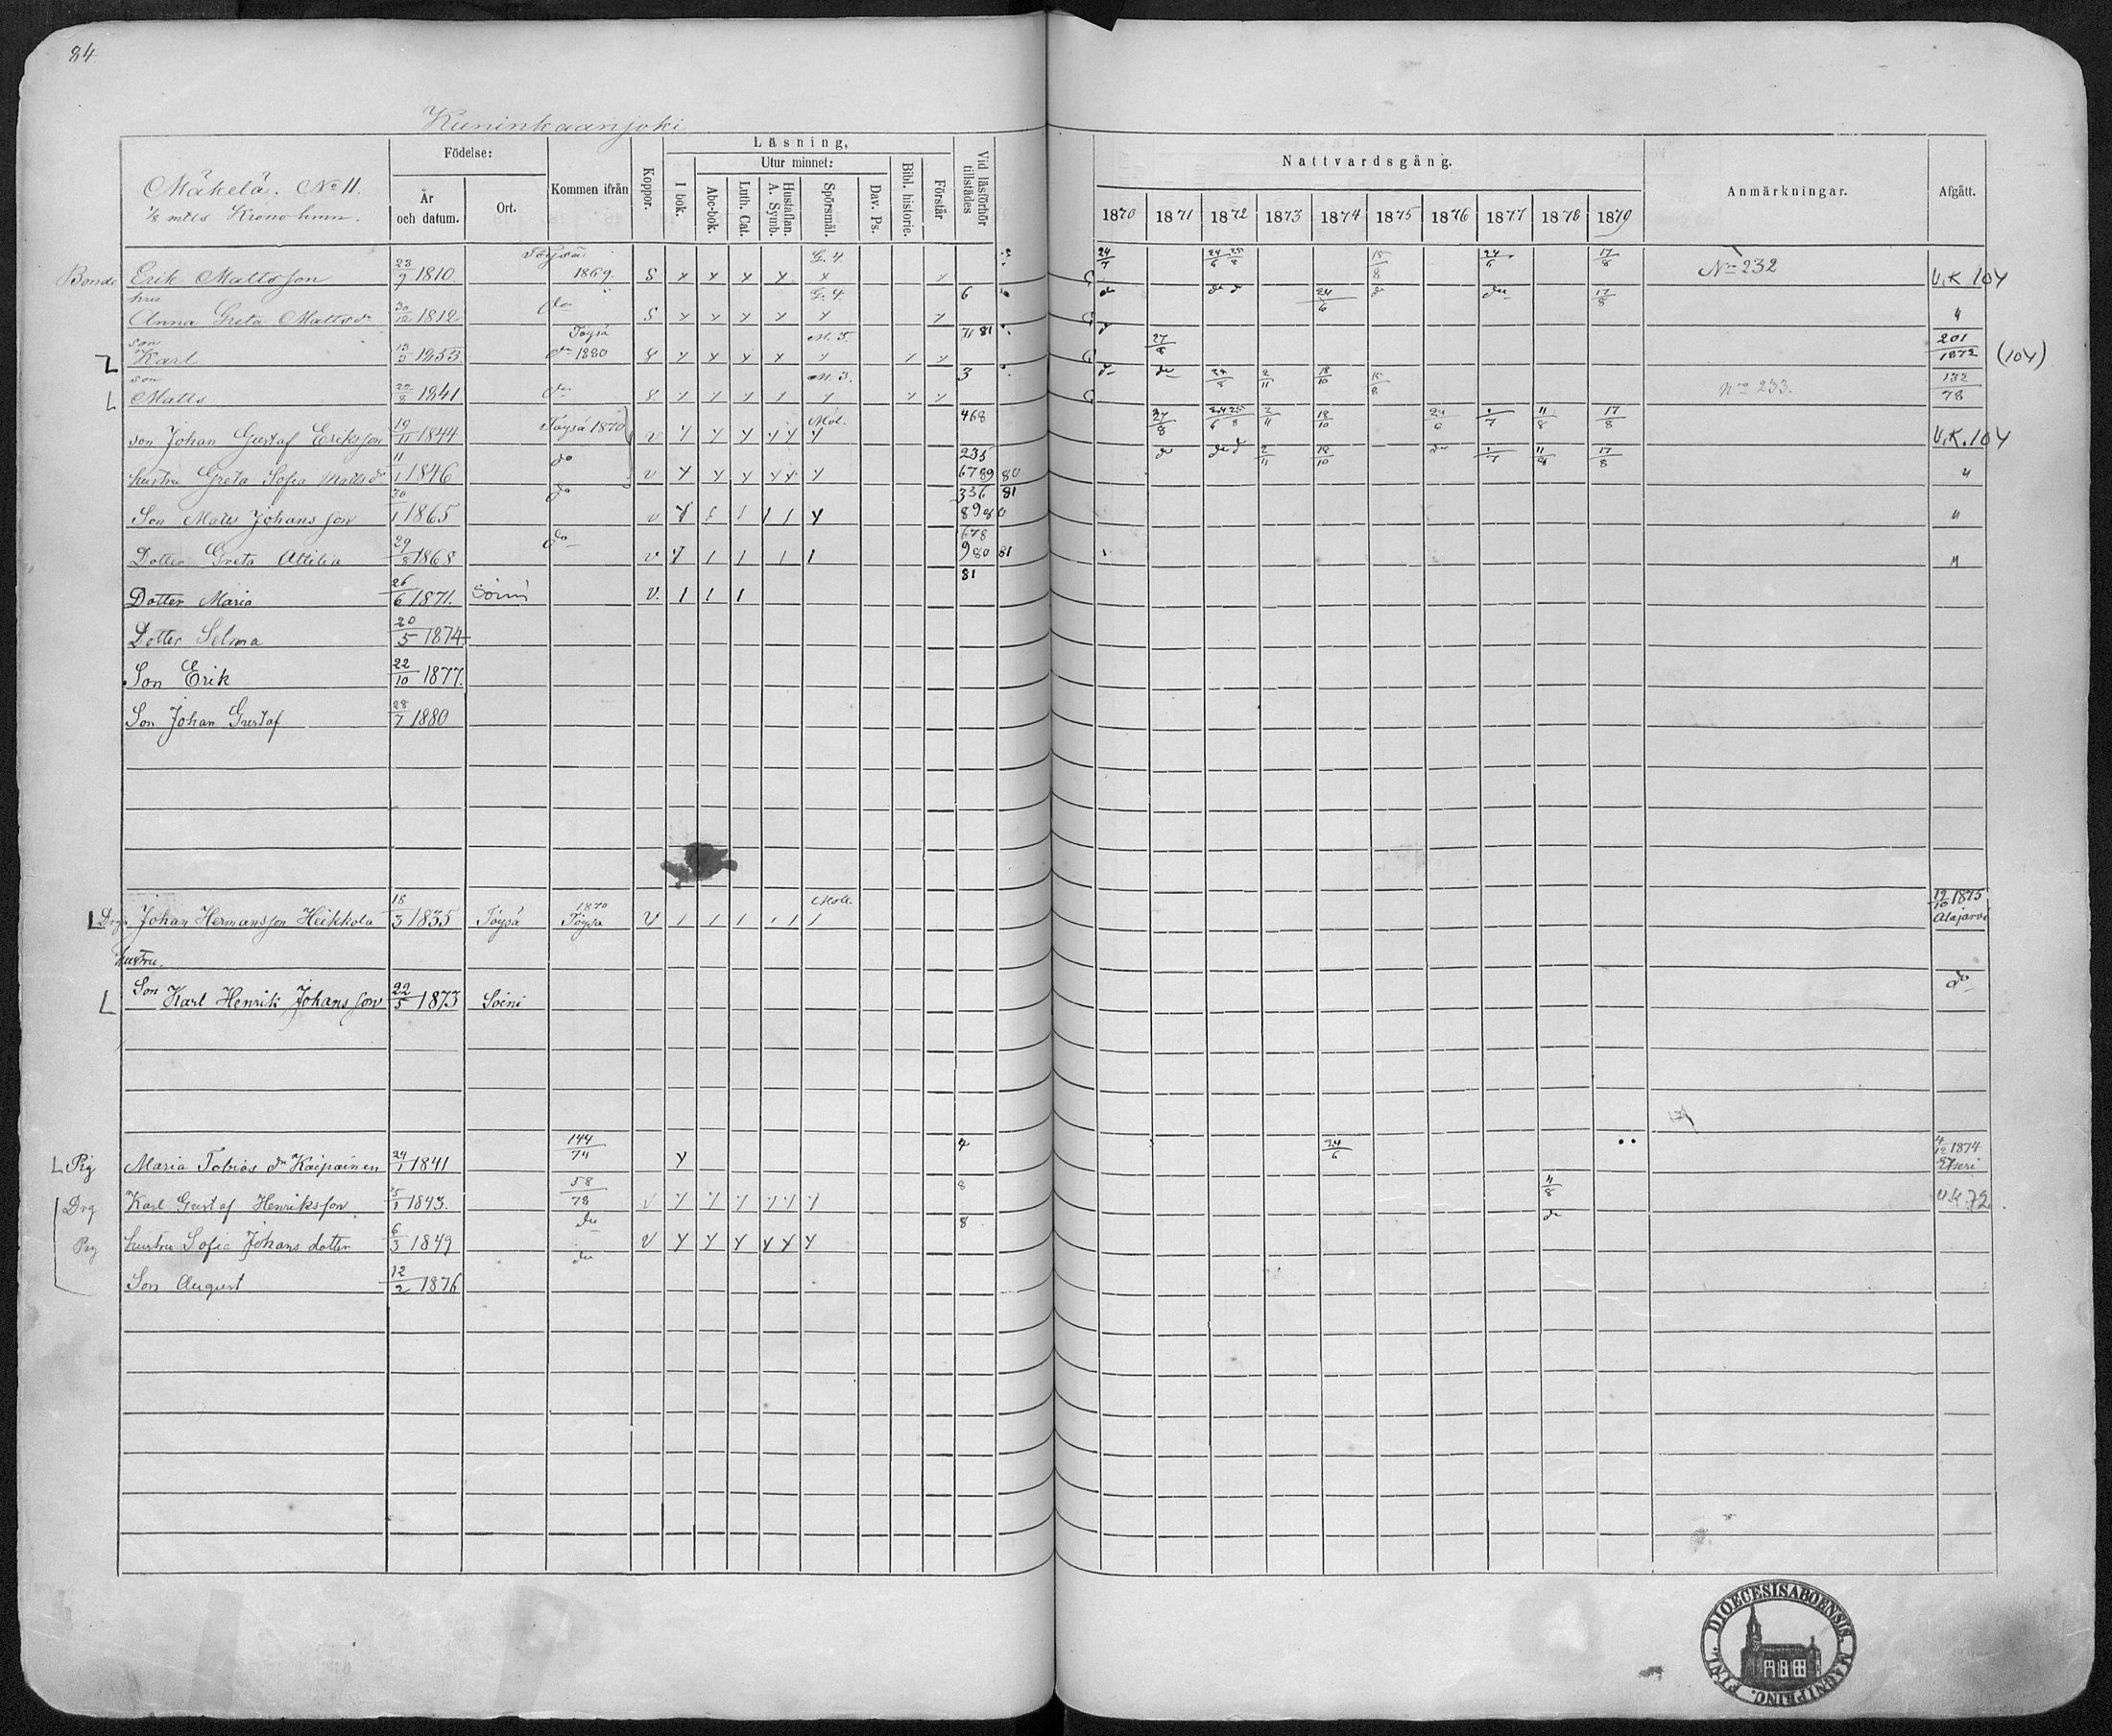 84
Kuninkaanjoki
Mäkelä. No 11.
1/8 mtls Krono hmn.
Födelse:
År och datum.
Ort.
Kommen ifrån
Koppor.
Läsning,
I bok.
Utur minnet:
Abc-bok.
Luth. Cat.
Hustaflan. A. Symb.
Spörsmål.
Dav. Ps.
Bibl. historie.
Förstår
Vid läsförhör tillstädes
Nattvardsgång.
1870 1871 1872 1873 1874 1875 1876 1877 1878 1879
Anmärkningar.
Afgått.
Bonde Erik Mattsson 23/9 1810 Töysä 1869. S x x x x G. 4. x 24/7 24/6 25/8 15/8 24/6 17/8 No 232 U.K 104
hru Anna Greta Mattsdr 30/12 1812 do S G. 4. 6 do do d 24/6 d do 17/8 "
son Karl 13/3 1853 Töysä do 1880 M. 5. 71 81 d 27/8 201/1872 (104)
son Matts 22/8 1841 do M. 3. 3 d do 24/8 2/11 18/10 15/8 No 233. 132/78
son Johan Gustaf Eriksson 19/11 1844 Töysä 1870 v Mol. 468 27/8 24/6 25/8 2/11 18/10 24/6 1/7 11/8 17/8 U.K. 104
hustru Greta Sofia Mattsdr 11/1 1846 do v 235 6789 80 do do d 2/11 18/10 do 1/7 11/8 17/8 "
Son Matts Johansson 30/1 1865 do v 336 81 8980 "
Dotter Greta Attilia 29/8 1868 do v 678 980 81 "
Dotter Maria 26/6 1871. Soini v. 81
Dotter Selma 20/5 1874
Son Erik 22/10 1877.
Son Johan Gustaf 28/7 1880
Drg Johan Hermansson Heikkola 18/3 1835 Töysä 1870 Töysä V Moll. 19/10 1875 Alajärvi
hustru.
Son Karl Henrik Johansson 22/5 1873 Soini do
Pig Maria Tobiasdr Kaipainen 24/1 1841 144/74 4 24/6 4/12 1874 Etseri
Drg Karl Gustaf Henriksson 5/1 1843. 58/78 v 8 11/8 U.K. 72.
Pig hustru Sofia Johansdotter 6/3 1849 do v 8 do
Son August 12/2 1876 do
DIOECESIS ABOENSIS MAGNI PRINC. FINL.